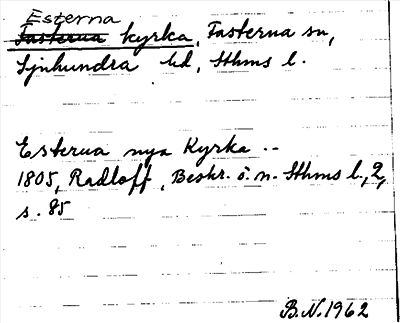 Esterna
Fasterna kyrka, Fasterna sn,
Sjuhundra hd, Sthms l.
Esterna nya Kyrka --
1805, Radloff, Beskr. ö. n. Sthms l., 2,
s. 85
B.N. 1962